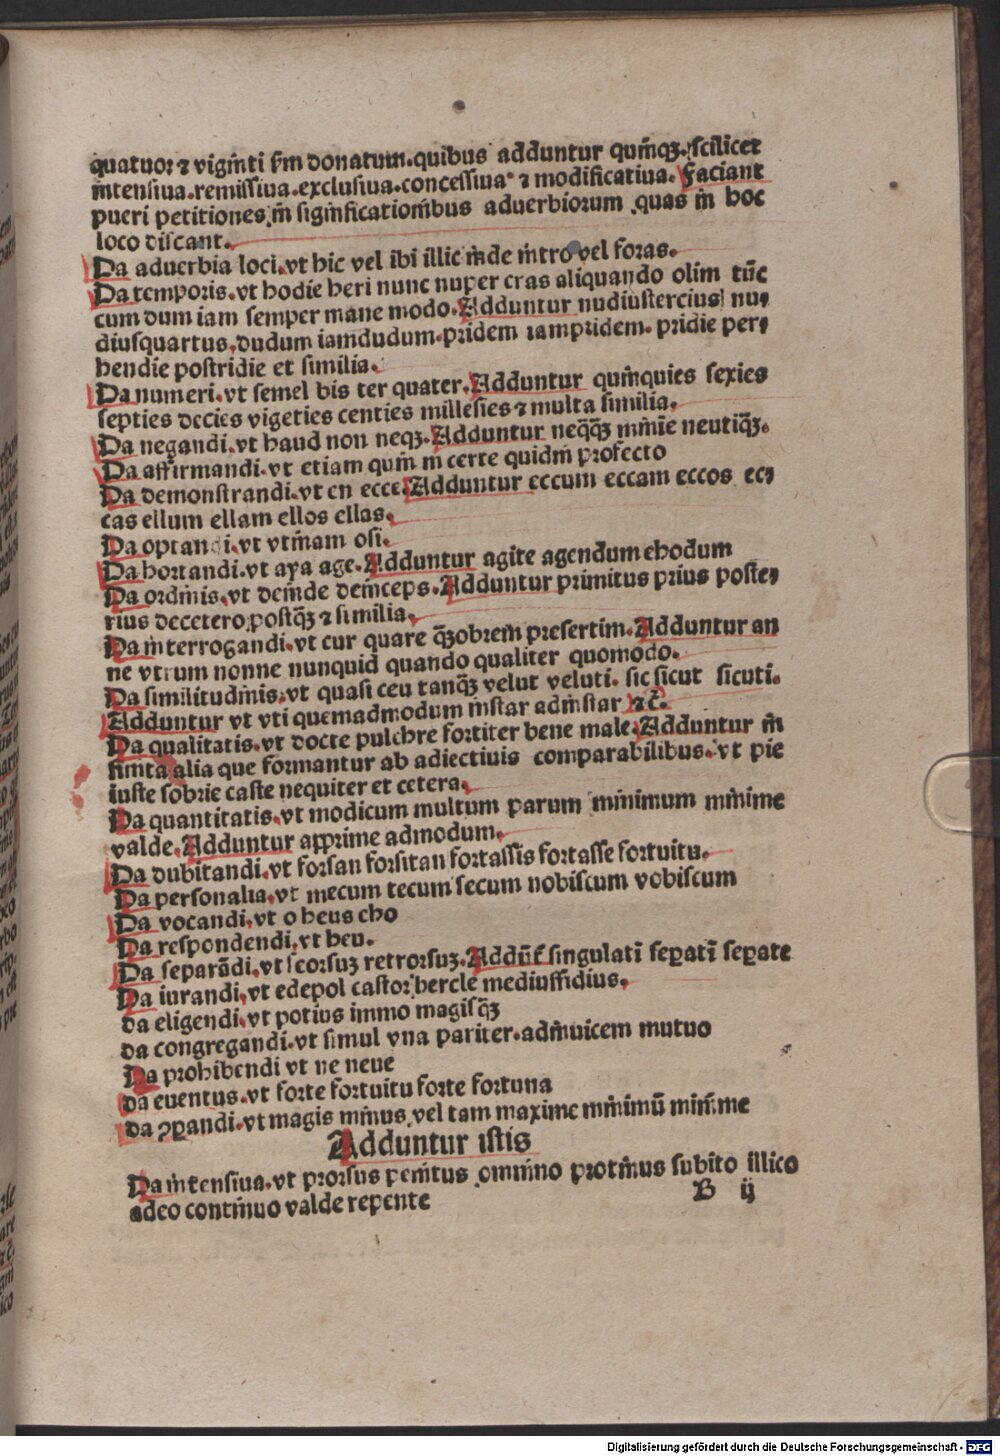 quatuor ⁊ viginti ẜm donatum. quibus adduntur quinqꝫ. scilicet
intensiua. remissiua. exclusiua. concessiua. ⁊ modificatiua. Faciant
pueri petitiones in significationibus aduerbiorum quas in hoc
loco discant.
Da aduerbia loci. vt hic vel ibi illic inde intro vel foras.
Da temporis. vt hodie heri nunc nuper cras aliquando olim tūc
cum dum iam semper mane modo. Adduntur nudiustercius nu⸗
diusquartus. dudum iamdudum. pridem iampridem. pridie per⸗
hendie postridie et similia.
Da numeri. vt semel bis ter quater. Adduntur quinquies sexies
septies decies vigeties centies millesies ⁊ multa similia.
Da negandi. vt haud non neqꝫ. Adduntur neq̄qꝫ minīe neutiqꝫ.
Da affirmandi. vt etiam quin in certe quidni profecto
Da demonstrandi. vt en ecce. Adduntur eccum eccam eccos ec⸗
cas ellum ellam ellos ellas.
Da optandi. vt vtinam osi.
Da hortandi. vt aya age. Adduntur agite agendum ehodum
Da ordinis. vt deinde deinceps. Adduntur primitus prius poste⸗
rius decetero postqꝫ ⁊ similia.
Da interrogandi. vt cur quare qꝫobrem presertim. Adduntur an
ne vtrum nonne nunquid quando qualiter quomodo.
Da similitudinis. vt quasi ceu tanqꝫ velut veluti. sic sicut sicuti.
Adduntur vt vti quemadmodum instar adinstar ⁊c̄.
Da qualitatis. vt docte pulchre fortiter bene male. Adduntur in
finita alia que formantur ab adiectiuis comparabilibus. vt pie
iuste sobrie caste nequiter et cetera.
Da quantitatis. vt modicum multum parum minimum minime
valde. Adduntur apprime admodum.
Da dubitandi. vt forsan forsitan fortassis fortasse fortuitu.
Da personalia. vt mecum tecum secum nobiscum vobiscum
Da vocandi. vt o heus eho
Da respondendi. vt heu.
Da separādi. vt seorsuꝫ retrorsuꝫ. Addūt̄ singulatī seꝑatī seꝑate
Da iurandi. vt edepol castor hercle mediusfidius.
da eligendi. vt potius immo magisqꝫ
da congregandi. vt simul vna pariter. adinuicem mutuo
Da prohibendi vt ne neue
da euentus. vt forte fortuitu forte fortuna
da ꝯꝑandi. vt magis minus vel tam maxime minimū minime
Adduntur istis
Da intensiua. vt prorsus penitus omnino protinus subito illico
adeo continuo valde repente
B ij
Digitalisierung gefördert durch die Deutsche Forschungsgemeinschaft - DFG